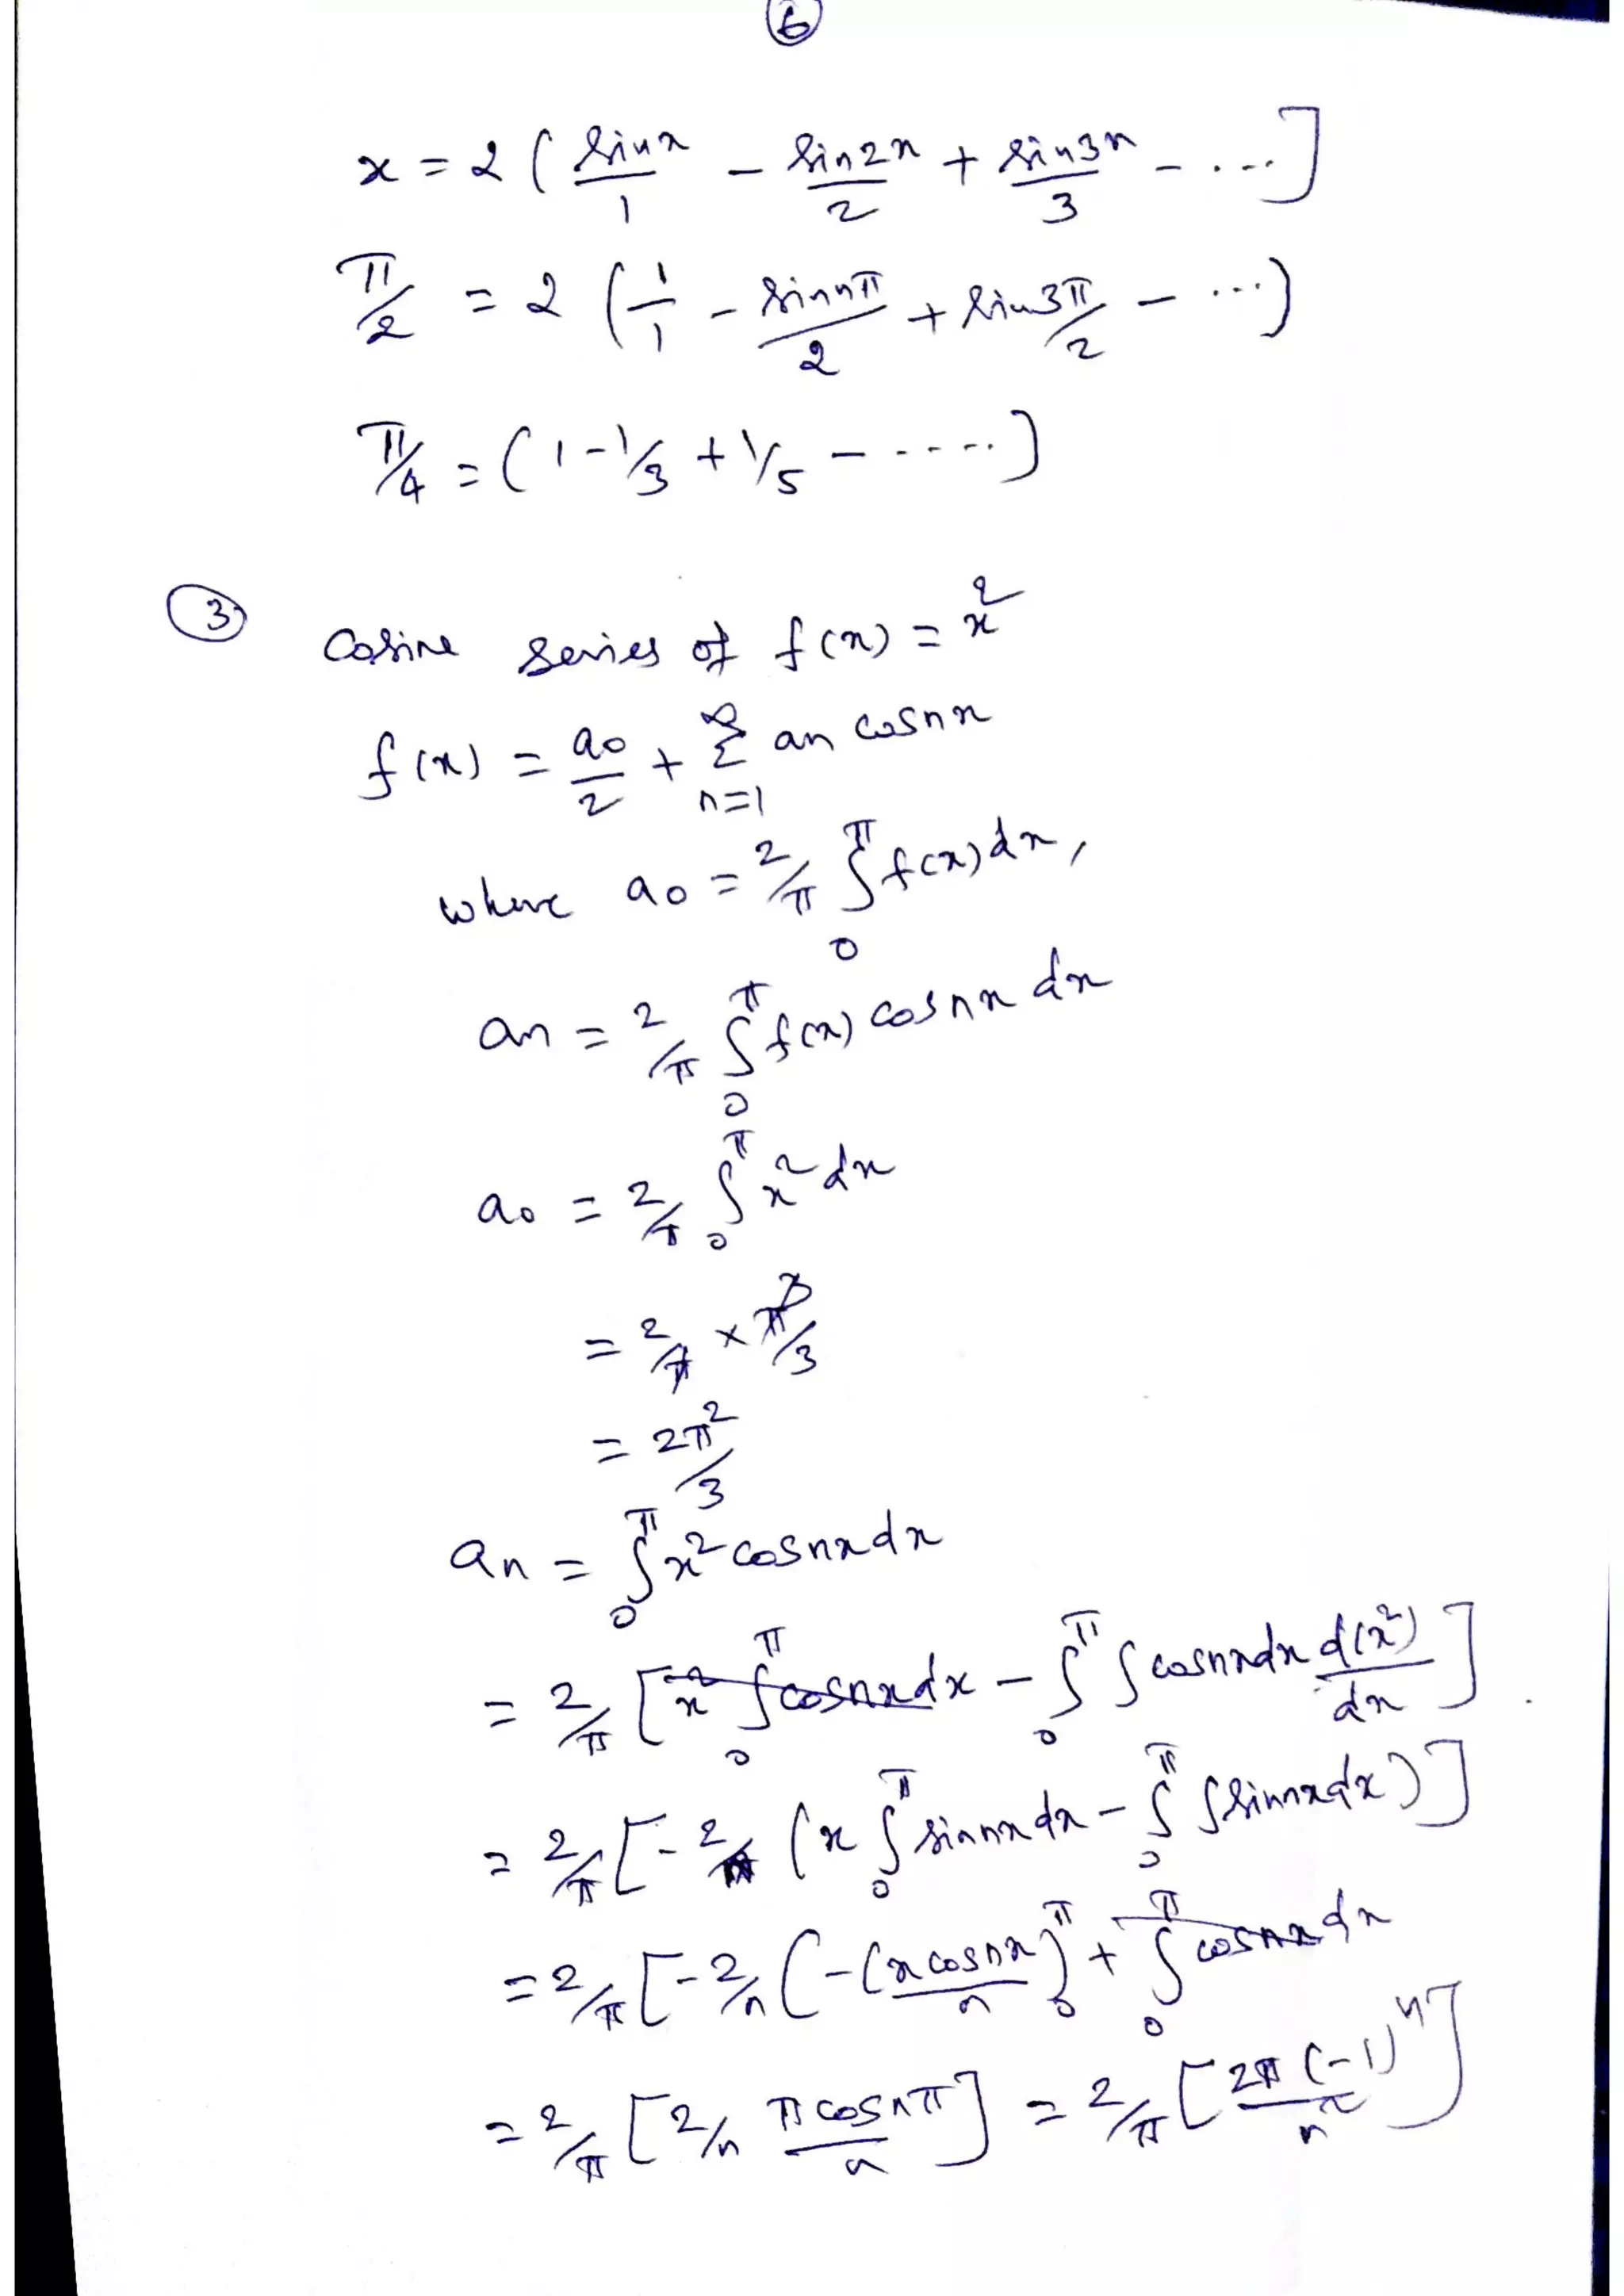 6
x = 2 ( sinx/1 - sin2x/2 + sin3x/3 - ....]
π/2 = 2 ( 1/1 - sinπ/2 + sin3π/2 - ...)
π/4 = ( 1 - 1/3 + 1/5 - .....]
③ Cosine series of f(x) = x²
f(x) = a0/2 + ∞Σn=1 an cosnx
where a0 = 2/π ∫₀^π f(x) dx,
an = 2/π ∫₀^π f(x) cosnx dx
a0 = 2/π ∫₀^π x² dx
= 2/π × π³/3
= 2π²/3
an = ∫₀^π x² cosnxdx
= 2/π [ x² ∫₀^π cosnxdx - ∫₀^π ∫ cosnxdx d(x²)/dx ]
= 2/π [ - 2/n ( x ∫₀^π sinnxdx - ∫₀^π ∫sinnxdx ) ]
= 2/π [ - 2/n ( - (xcosnx/n)₀^π + ∫₀^π cosnxdx
= 2/π [ 2/n πcosnπ/n ] = 2/π [ 2π(-1)ⁿ/n² ]